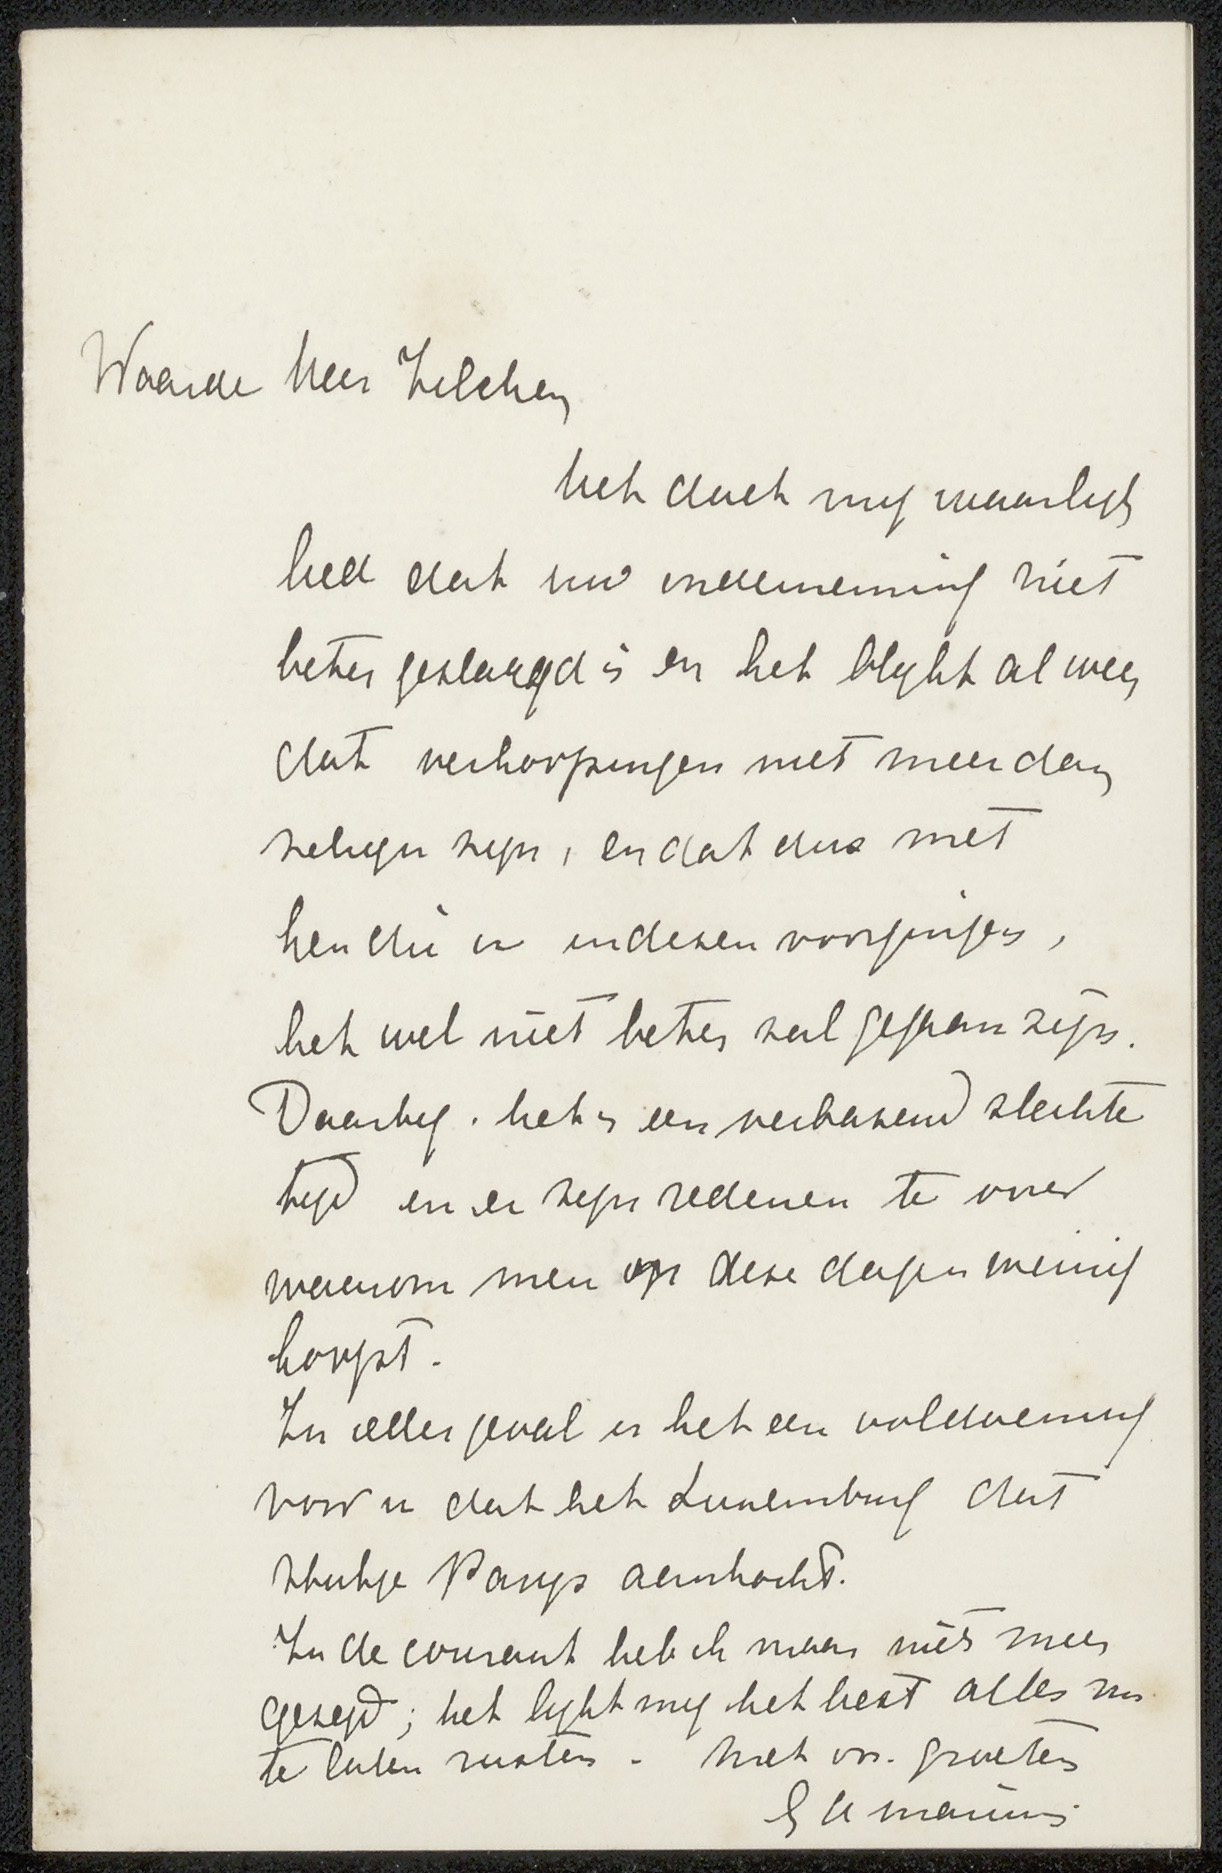 Waarde heer Zilcken
het doet mij waarlijk
leed dat uw onderneming niet
beter geslaagd is en het blijkt al weer
dat verkoopingen niet meer dan
zelden zijn, en dat dus met
hen die u in dezen voorgingen,
het wel niet beter zal gegaan zijn.
Daarbij. het is een verbazend slechte
tijd en er zijn redenen te over
waarom men op deze dagen weinig
koopt.
In alle geval is het een voldoening
voor u dat het Luxemburg dat
stukje Parijs aankocht.
In de courant heb ik maar niets meer
gezegd; het lijkt mij het best alles nu
te laten rusten. met vr. groeten
G H Marius